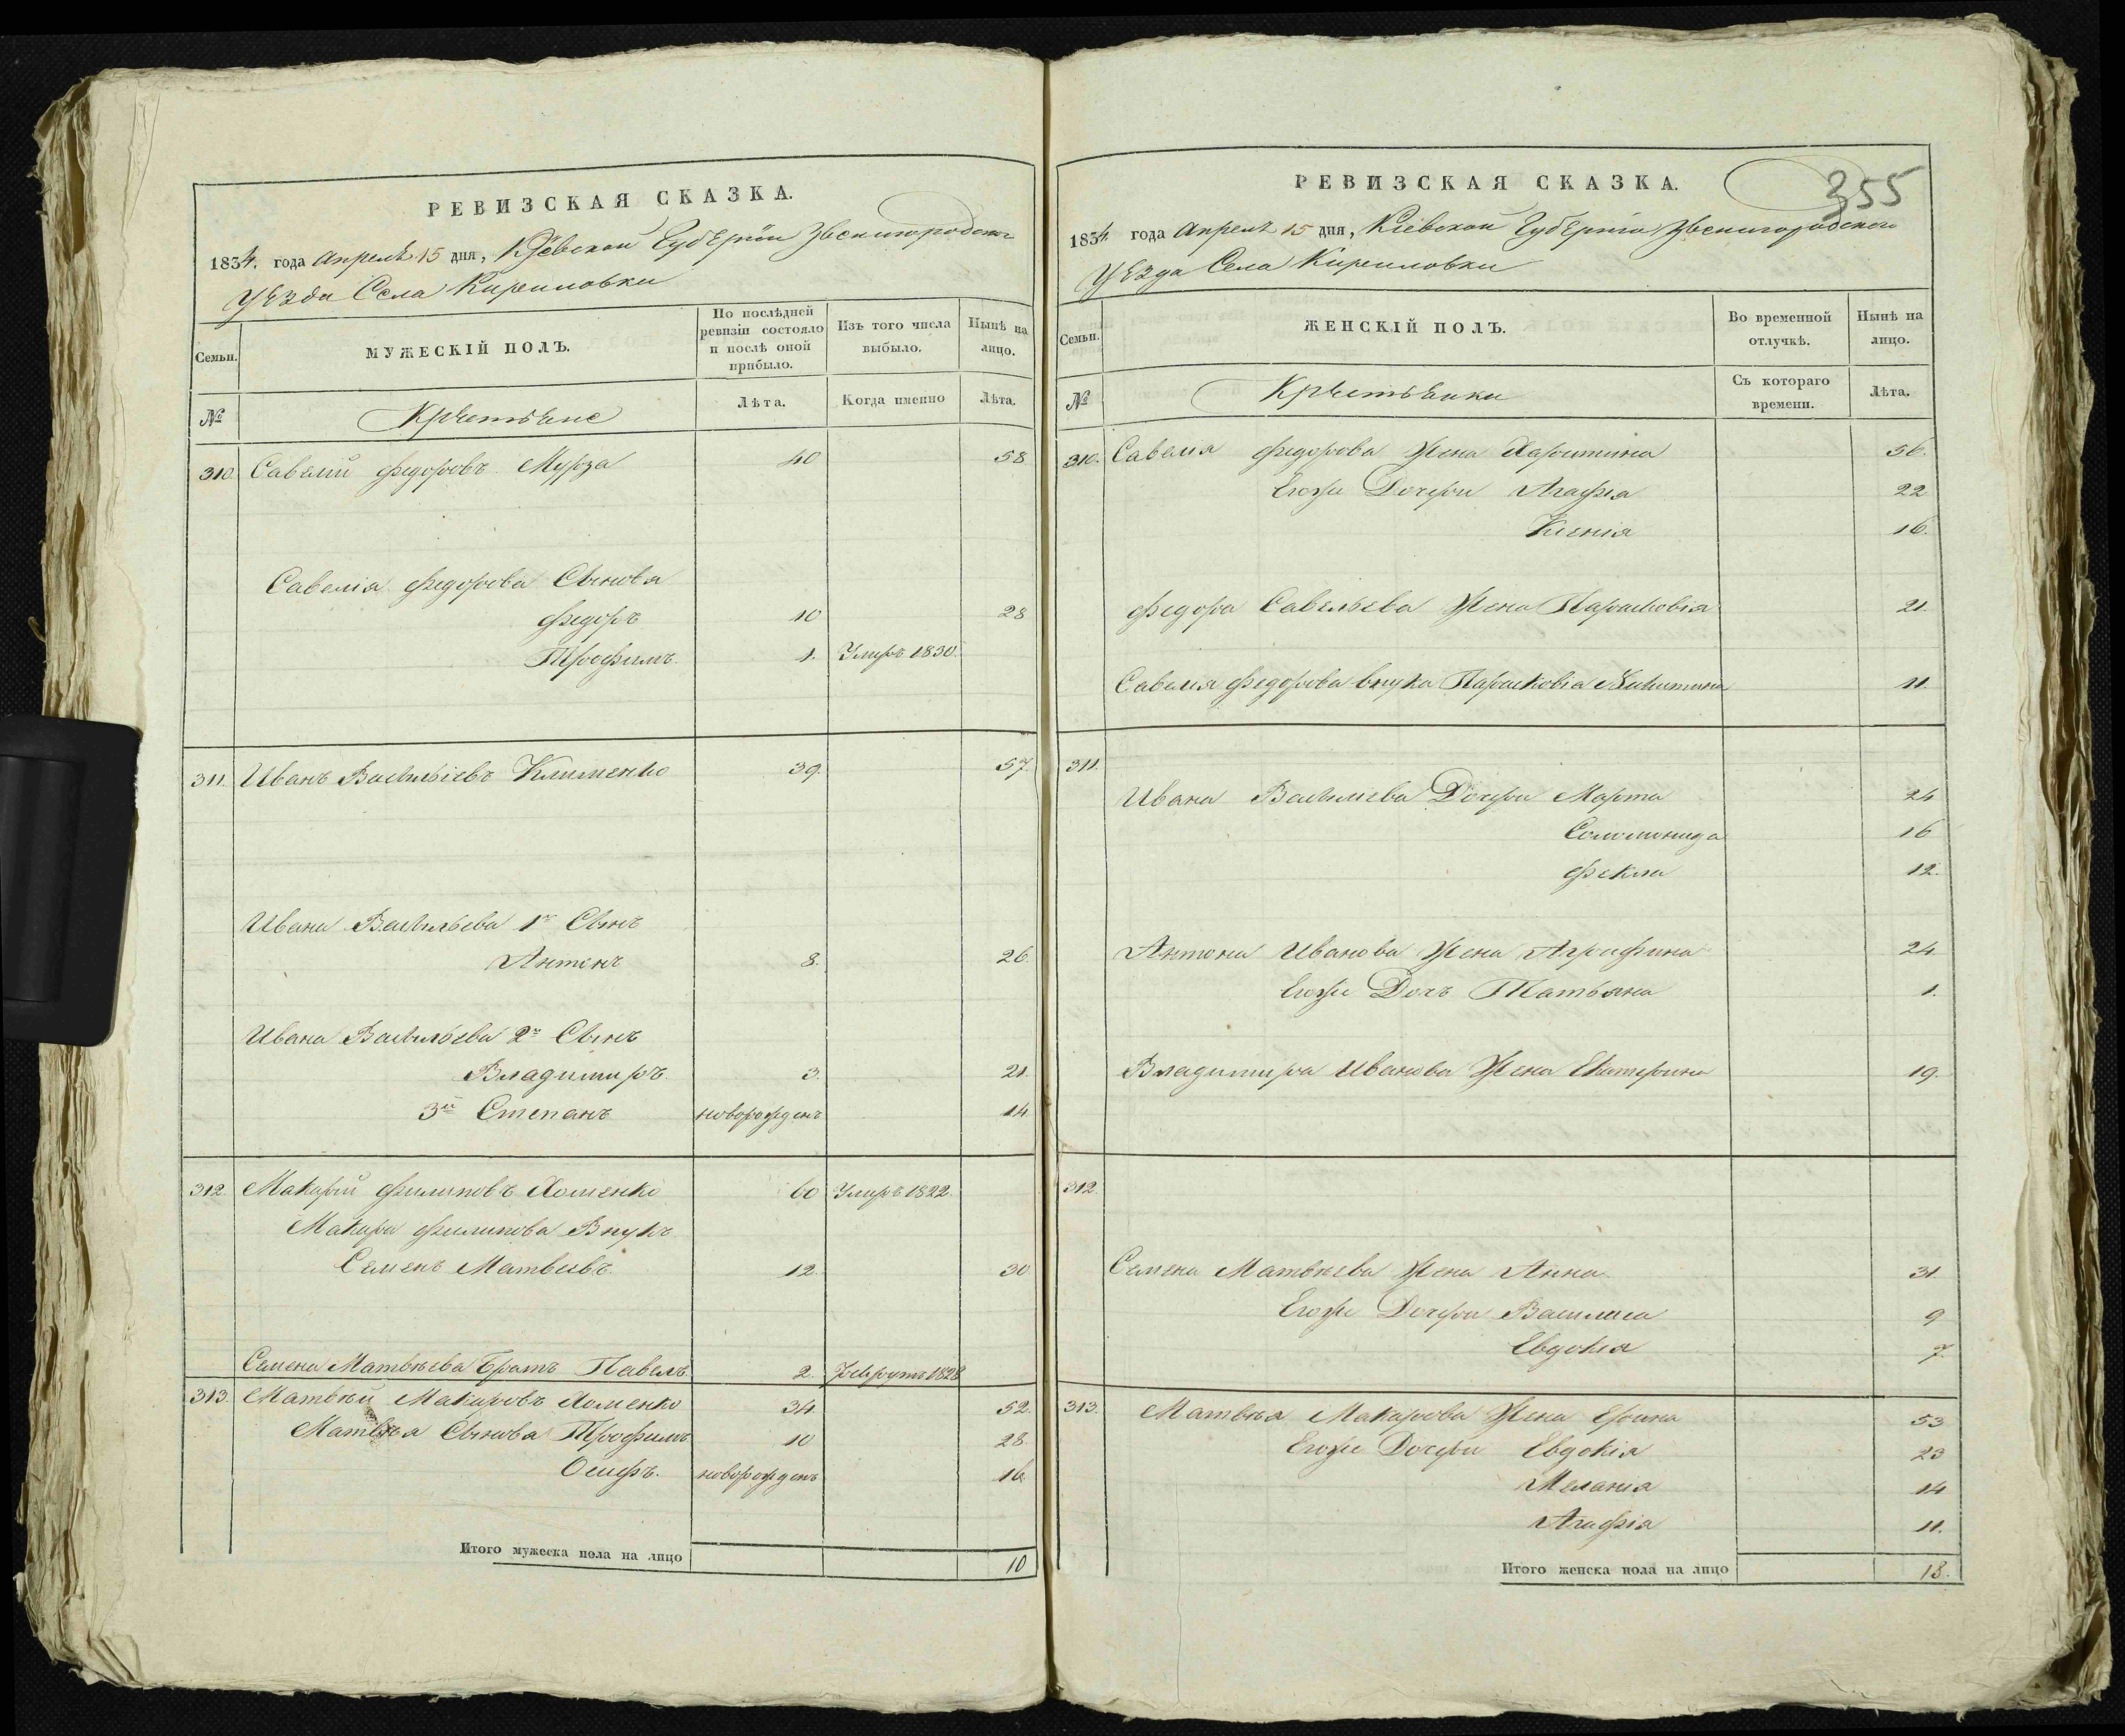 РЕВИЗСКАЯ СКАЗКА.
1834. года Апреля 15 дня, Кіевской Губерніи Звенигородского
Уезда Села Кириловки
Семьи. МУЖЕСКІЙ ПОЛЪ. По послѣдней ревизіи состояло и послѣ оной прибыло. Изъ того числа выбыло. Нынѣ на лицо.
№ Крестьяне Лѣта. Когда именно Лѣта.
310 Савелий Федоровъ Мурза 40 58
Савелія Федорова Сыновя
Федоръ 10 28
Трофимъ. 1. Умиръ 1830.
311. Иванъ Васильіевъ Клименко 39. 57.
Ивана Васильева 1й Сынъ
Антонъ 8. 26.
Ивана Васильева 2й Сынъ
Владимиръ. 3. 21.
3й Степанъ новорожденъ 14
312. Макарий Филиповъ Хоменко 60 Умиръ 1822.
Макара Филипова Внукъ
Семенъ Матвеевъ. 12. 30
Семена Матвѣева Братъ Павелъ. 2. Рекрутъ 1828
313. Матвѣй Макаровъ Хоменко 34. 52.
Матвѣя Сынова Трофимъ 10 28.
Осипъ. новорожденъ 16
Итого мужеска пола на лицо 10
355
РЕВИЗСКАЯ СКАЗКА.
1834. года Апреля 15 дня, Кіевской Губерніи Звенигородского
Уезда Села Кириловки
Семьи. ЖЕНСКІЙ ПОЛЪ. Во временной отлучкѣ. Нынѣ на лицо.
№ Крестьянки Съ котораго времени. Лѣта.
310. Савелія Федорова Жена Харитина 56.
Егоже Дочери Агафія 22
Ксенія 16.
Федора Савельева Жена Парасковія 21.
Савелія Федорова внука Парасковіа Никитина 11.
311.
Ивана Василиева Дочери Марта 24
Соломонида 16
Фекла 12.
Антона Иванова Жена Аграфина 24.
Егоже Дочъ Татьяна 1.
Владимира Иванова Жена Екатерина 19.
312.
Семена Матвѣева Жена Анна 31.
Егоже Дочери Василиса 9
Евдокія 7.
313. Матвѣя Макарова Жена Ерина 53
Егоже Дочери Евдокія 23
Меланія 14
Агафія 11.
Итого женска пола на лицо 18.